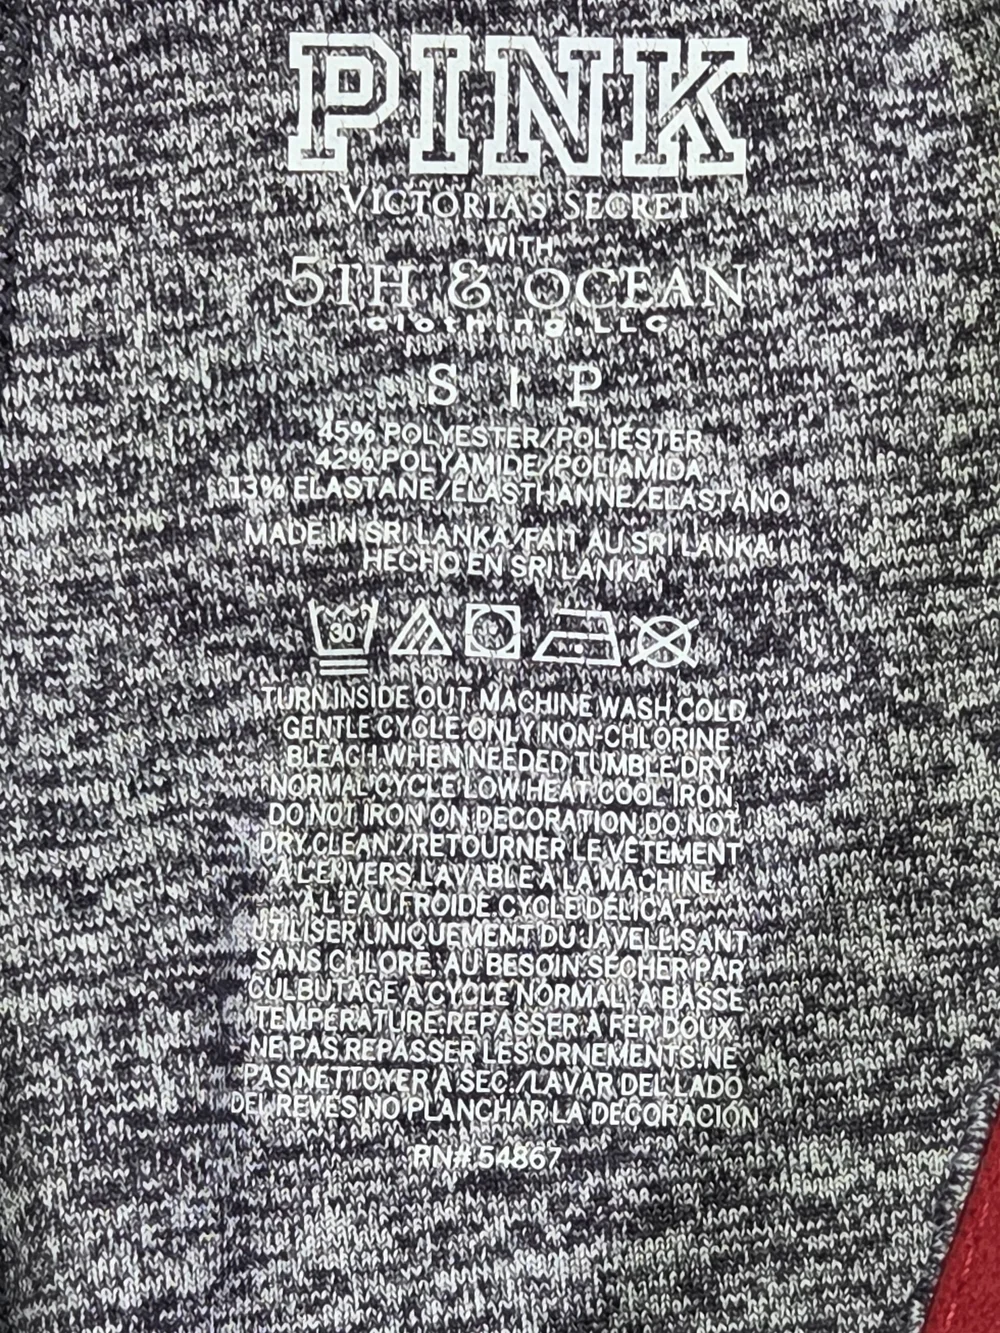 PINK
VICTORIA'S SECRET
WITH
5TH & OCEAN
clothing, LLC
S | P
45% POLYESTER/POLIÉSTER
42% POLYAMIDE/POLIAMIDA
13% ELASTANE/ÉLASTHANNE/ELASTANO
MADE IN SRI LANKA/FAIT AU SRI LANKA/
HECHO EN SRI LANKA
30
TURN INSIDE OUT. MACHINE WASH COLD,
GENTLE CYCLE.ONLY NON-CHLORINE
BLEACH WHEN NEEDED.TUMBLE DRY,
NORMAL CYCLE LOW HEAT.COOL IRON.
DO NOT IRON ON DECORATION.DO NOT
DRY CLEAN./RETOURNER LE VÊTEMENT
À L'ENVERS.LAVABLE À LA MACHINE
À L'EAU FROIDE CYCLE DÉLICAT.
UTILISER UNIQUEMENT DU JAVELLISANT
SANS CHLORE, AU BESOIN.SÉCHER PAR
CULBUTAGE À CYCLE NORMAL, À BASSE
TEMPÉRATURE.REPASSER À FER DOUX.
NE PAS REPASSER LES ORNEMENTS.NE
PAS NETTOYER À SEC./LAVAR DEL LADO
DEL REVÉS NO PLANCHAR LA DECORACIÓN
RN# 54867